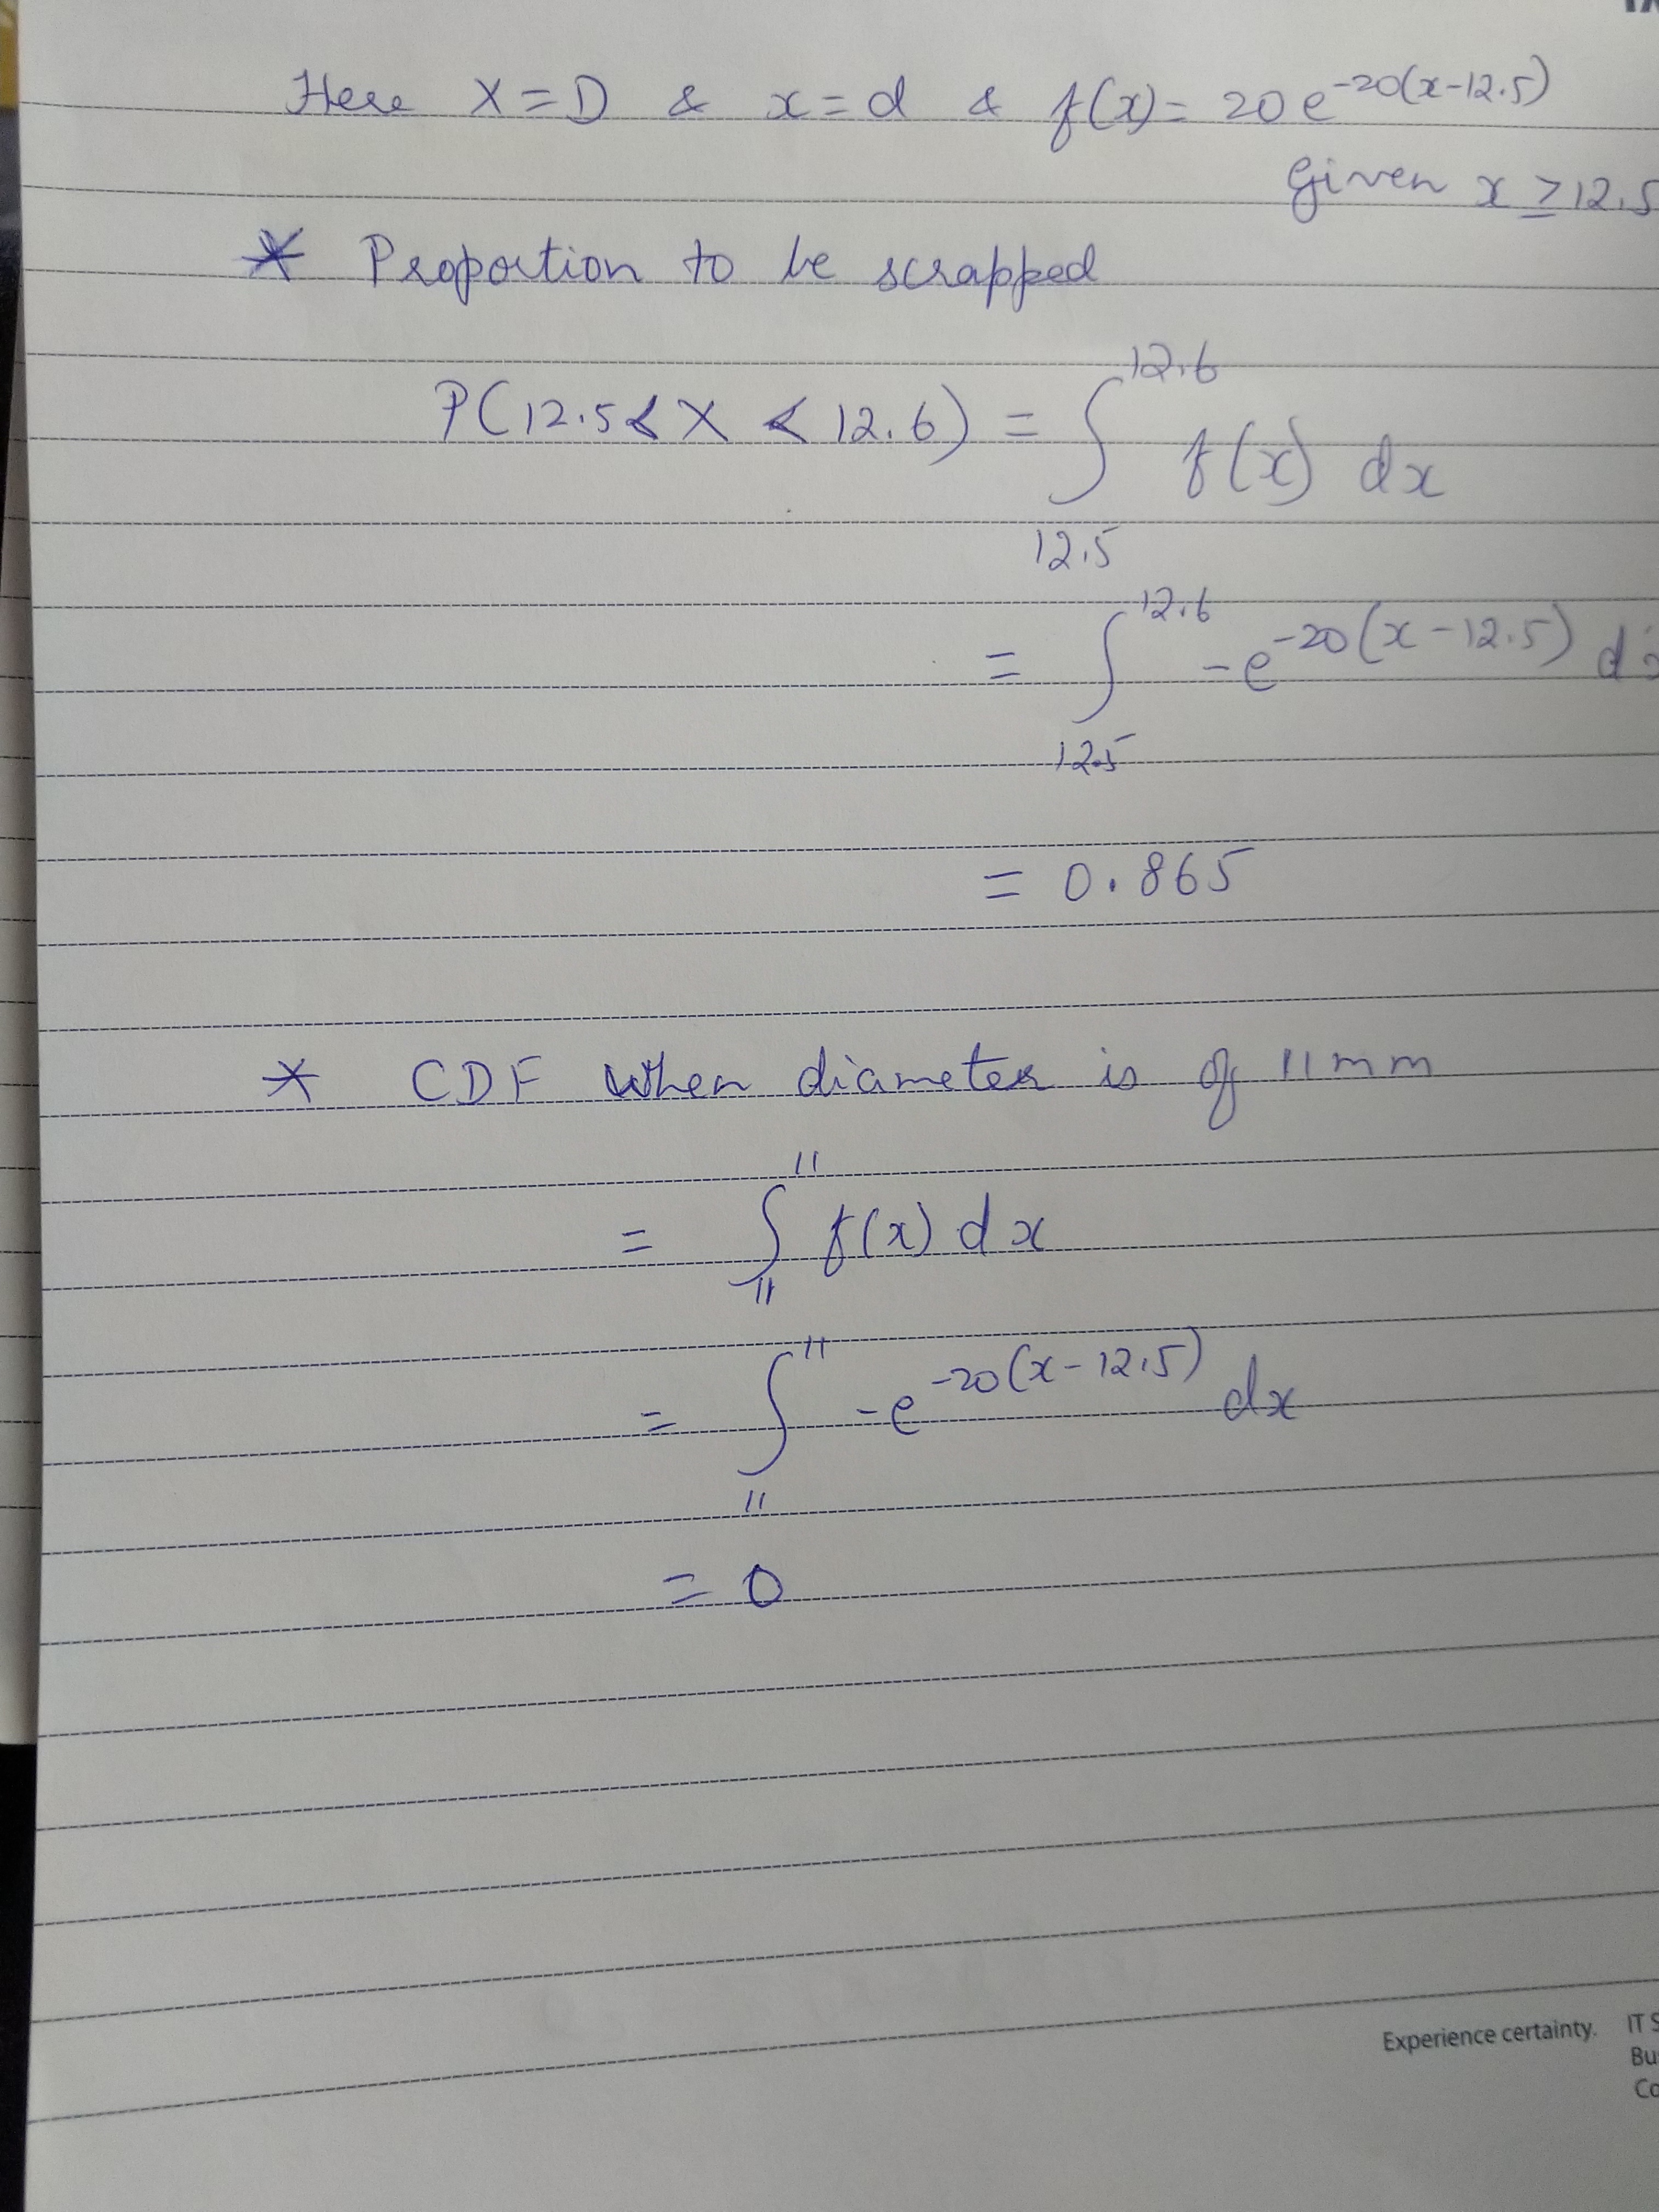 Here X = D & x = d & f(x) = 20 e^-20(x-12.5)
Given x ≥ 12.5
* Proportion to be scrapped
12.6
P(12.5 < X < 12.6) = ∫ f(x) dx
12.5
12.6
= ∫ -e^-20(x-12.5) dx
12.5
= 0.865
* CDF when diameter is of 11mm
11
= ∫ f(x) dx
11
11
= ∫ -e^-20(x-12.5) dx
11
= 0
Experience certainty. IT S
Bu
Co